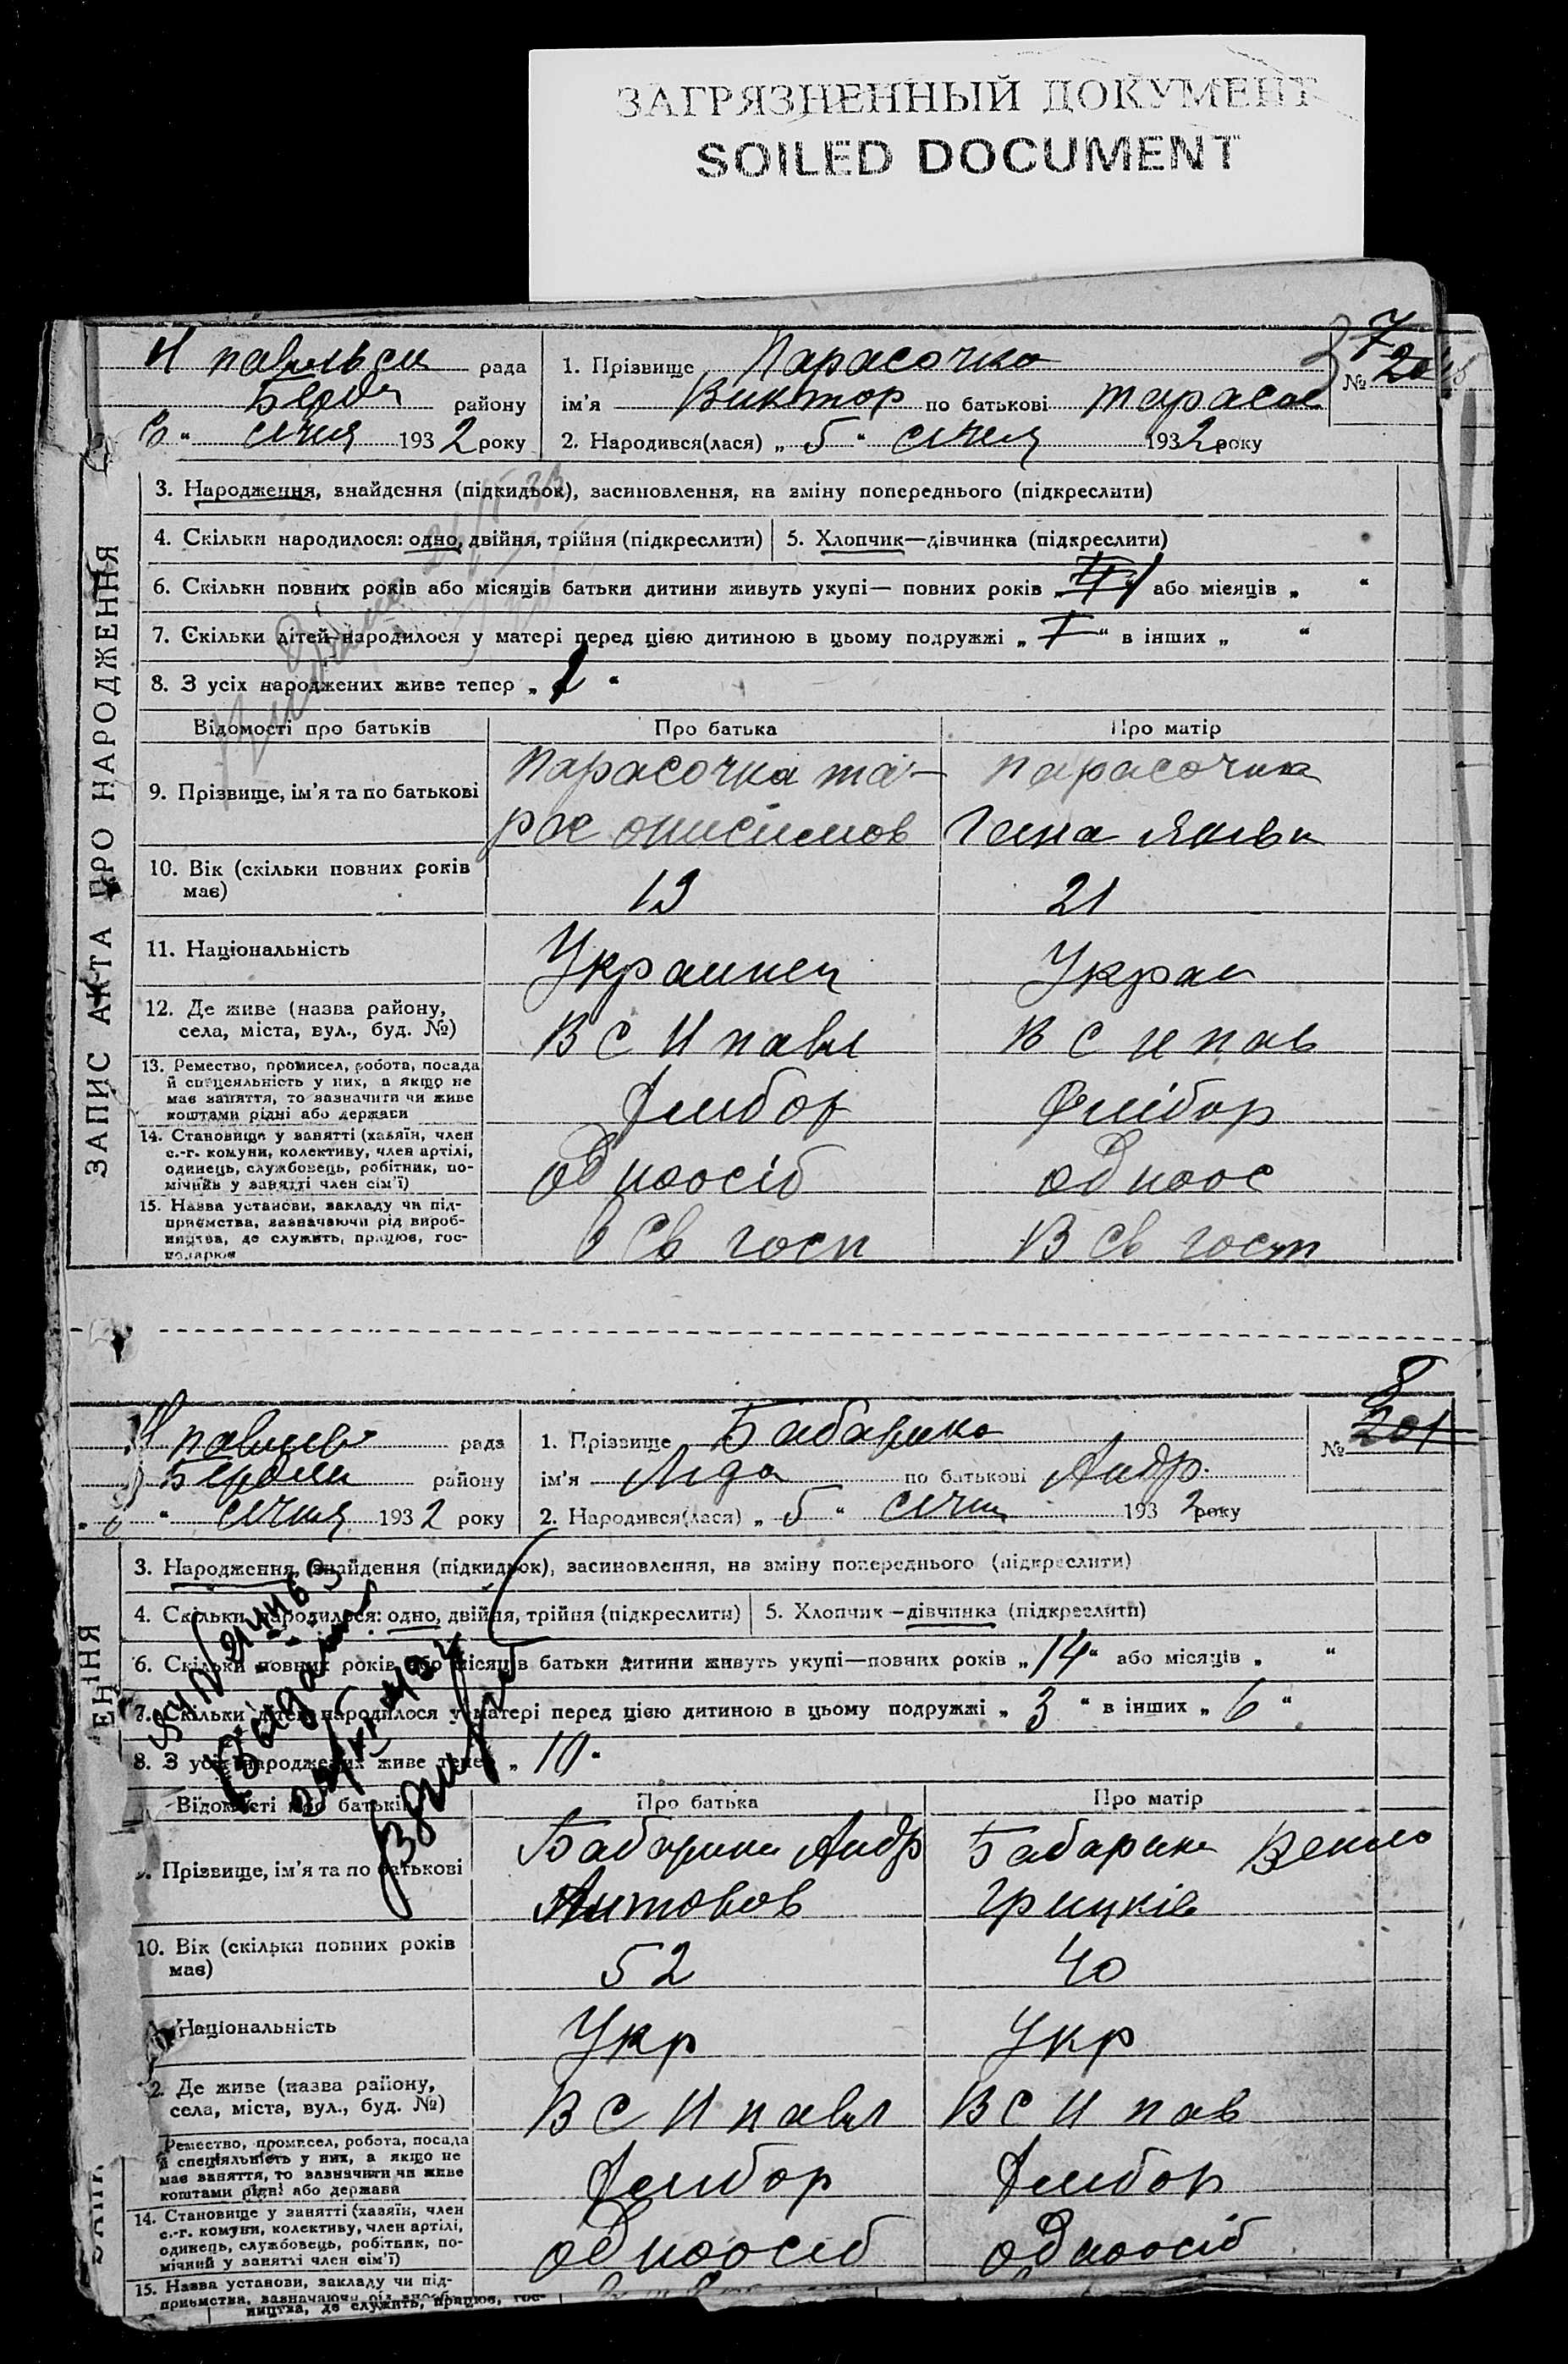 ЗАГРЯЗНЕННЫЙ ДОКУМЕНТ
SOILED DOCUMENT
рада
району
6 " січня 1932 року
1. Прізвище Парасочка
№ 7
ім'я Виктор по батькові Тарасов
2. Народився(лася) „ 5 " січня 1932 року
ЗАПИС АКТА ПРО НАРОДЖЕННЯ
3. Народження, знайдення (підкидьок), засиновлення, на зміну попереднього (підкреслити)
4. Скільки народилося: одно, двійня, трійня (підкреслити)
5. Хлопчик—дівчинка (підкреслити)
6. Скільки повних років або місяців батьки дитини живуть укупі— повних років „ " або місяців „ "
7. Скільки дітей народилося у матері перед цією дитиною в цьому подружжі „ " в інших „ "
8. З усіх народжених живе тепер „ "
Відомості про батьків
Про батька
Про матір
9. Прізвище, ім'я та по батькові
Парасочка та-
рас онисимов
Парасочка
10. Вік (скільки повних років
має)
21
11. Національність
Украинец
Украи
12. Де живе (назва району,
села, міста, вул., буд. №)
В С И павл
В С И пав
13. Ремество, промисел, робота, посада
й спеціяльність у них, а якщо не
має заняття, то зазначити чи живе
коштами рідні або держави
хлибор
хлібор
14. Становище у занятті (хазяїн, член
с.-г. комуни, колективу, член артілі,
одинець, службовець, робітник, по-
мічний у занятті член сім'ї)
одноосіб
одноос
15. Назва установи, закладу чи під-
приємства, зазначаючи рід вироб-
ництва, де служить, працює, гос-
подарює
в Св госп
В Св госп
рада
району
6 " січня 1932 року
1. Прізвище Бабарика
№ 8
201
ім'я Лида по батькові Андр.
2. Народився(лася) „ 5 " січня 1932 року
3. Народження, знайдення (підкидьок), засиновлення, на зміну попереднього (підкреслити)
4. Скільки народилося: одно, двійня, трійня (підкреслити)
5. Хлопчик—дівчинка (підкреслити)
6. Скільки повних років або місяців батьки дитини живуть укупі—повних років „ 14 " або місяців „ "
7. Скільки дітей народилося у матері перед цією дитиною в цьому подружжі „ 3 " в інших „ 6 "
8. З усіх народжених живе тепер „ 10 "
Відомості про батьків
Про батька
Про матір
9. Прізвище, ім'я та по батькові
Бабарика Андр
Антонов
Бабарика
Грицків
10. Вік (скільки повних років
має)
52
40
Національність
Укр
Укр
2. Де живе (назва району,
села, міста, вул., буд. №)
В С И павл
В С И пав
Ремество, промисел, робота, посада
й спеціяльність у них, а якщо не
має заняття, то зазначити чи живе
коштами рідні або держави
хлибор
хлибор
14. Становище у занятті (хазяїн, член
с.-г. комуни, колективу, член артілі,
одинець, службовець, робітник, по-
мічний у занятті член сім'ї)
одноосіб
одноосіб
15. Назва установи, закладу чи під-
приємства, зазначаючи рід вироб-
ництва, де служить, працює, гос-